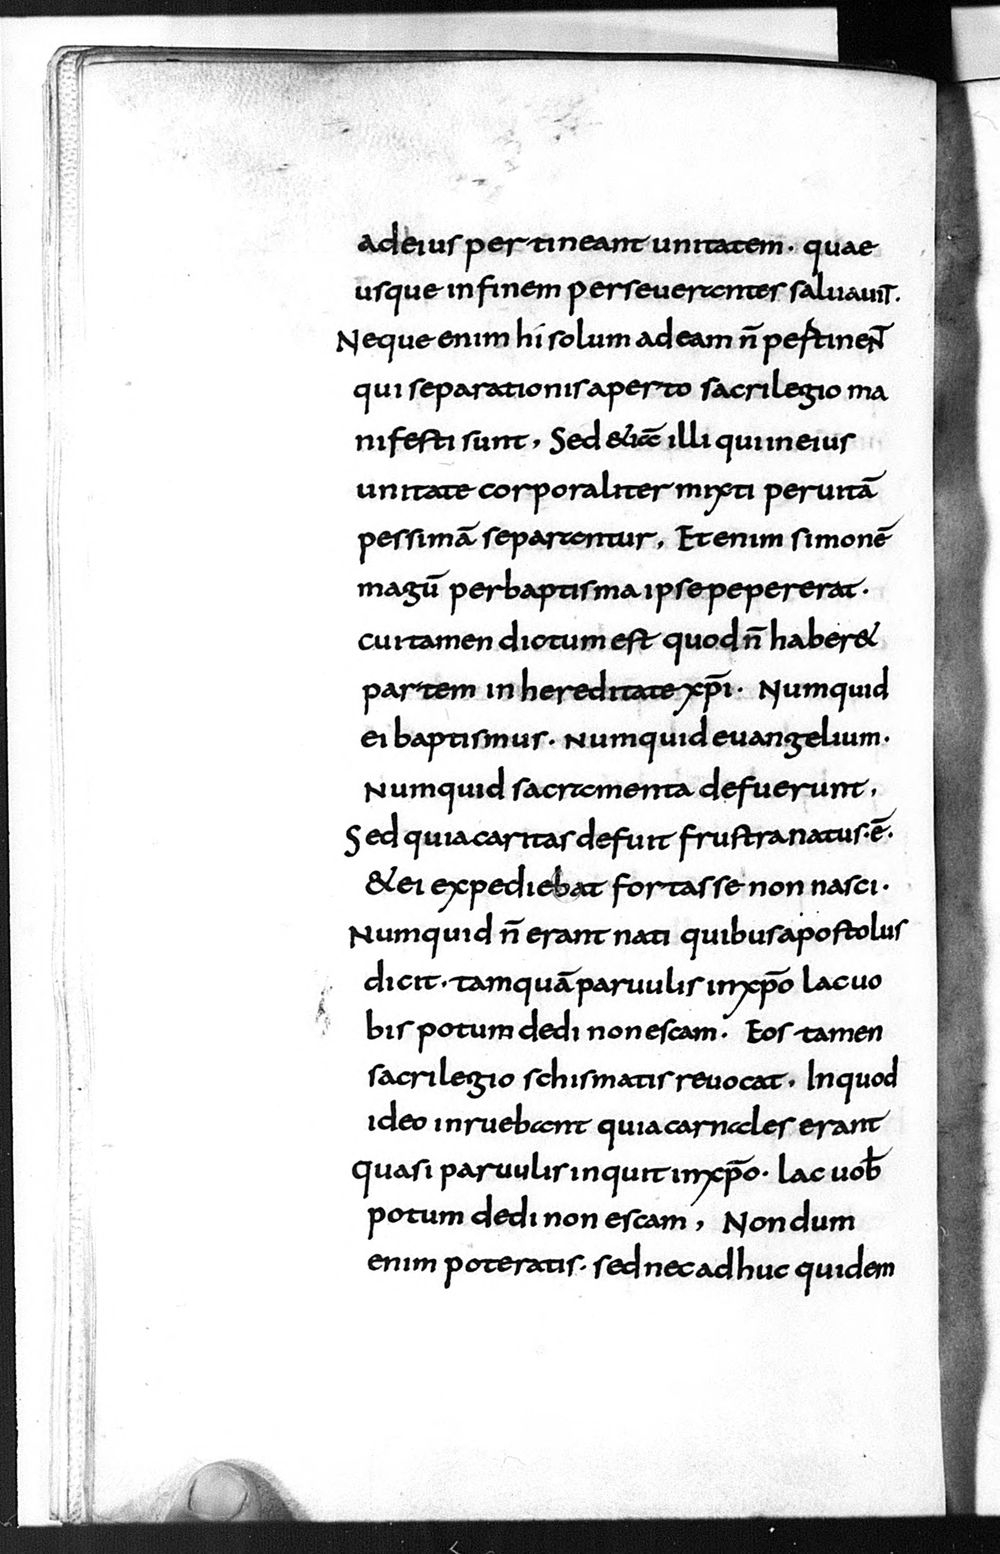 ad eius pertineant unitatem· quae
usque in finem perseverantes salvavit.
Neque enim hi solum ad eam n̄ pertineN̄T
qui separationis aperto sacrilegio ma
nifesti sunt, Sed & illi qui in eius
unitate corporaliter mixti per uitā
pessimā separantur, Etenim simonē
magū per baptisma ipse pepererat·
cui tamen dictum est quod n̄ haber&
partem in hereditate xp̄i· Numquid
ei baptismus· Numquid euangelium·
Numquid sacramenta defuerunt,
Sed quia caritas defuit frustra natus·ē·
& ei expediebat fortasse non nasci·
Numquid n̄ erant nati quibus apostolus
dicit· tamquā paruulis in xp̄o lac uo
bis potum dedi non escam· Eos tamen
sacrilegio schismatis reuocat· In quod
ideo inruebant quia carnales erant
quasi paruulis inquit in xp̄o· lac uob̄
potum dedi non escam, Nondum
enim poteratis· sed nec adhuc quidem